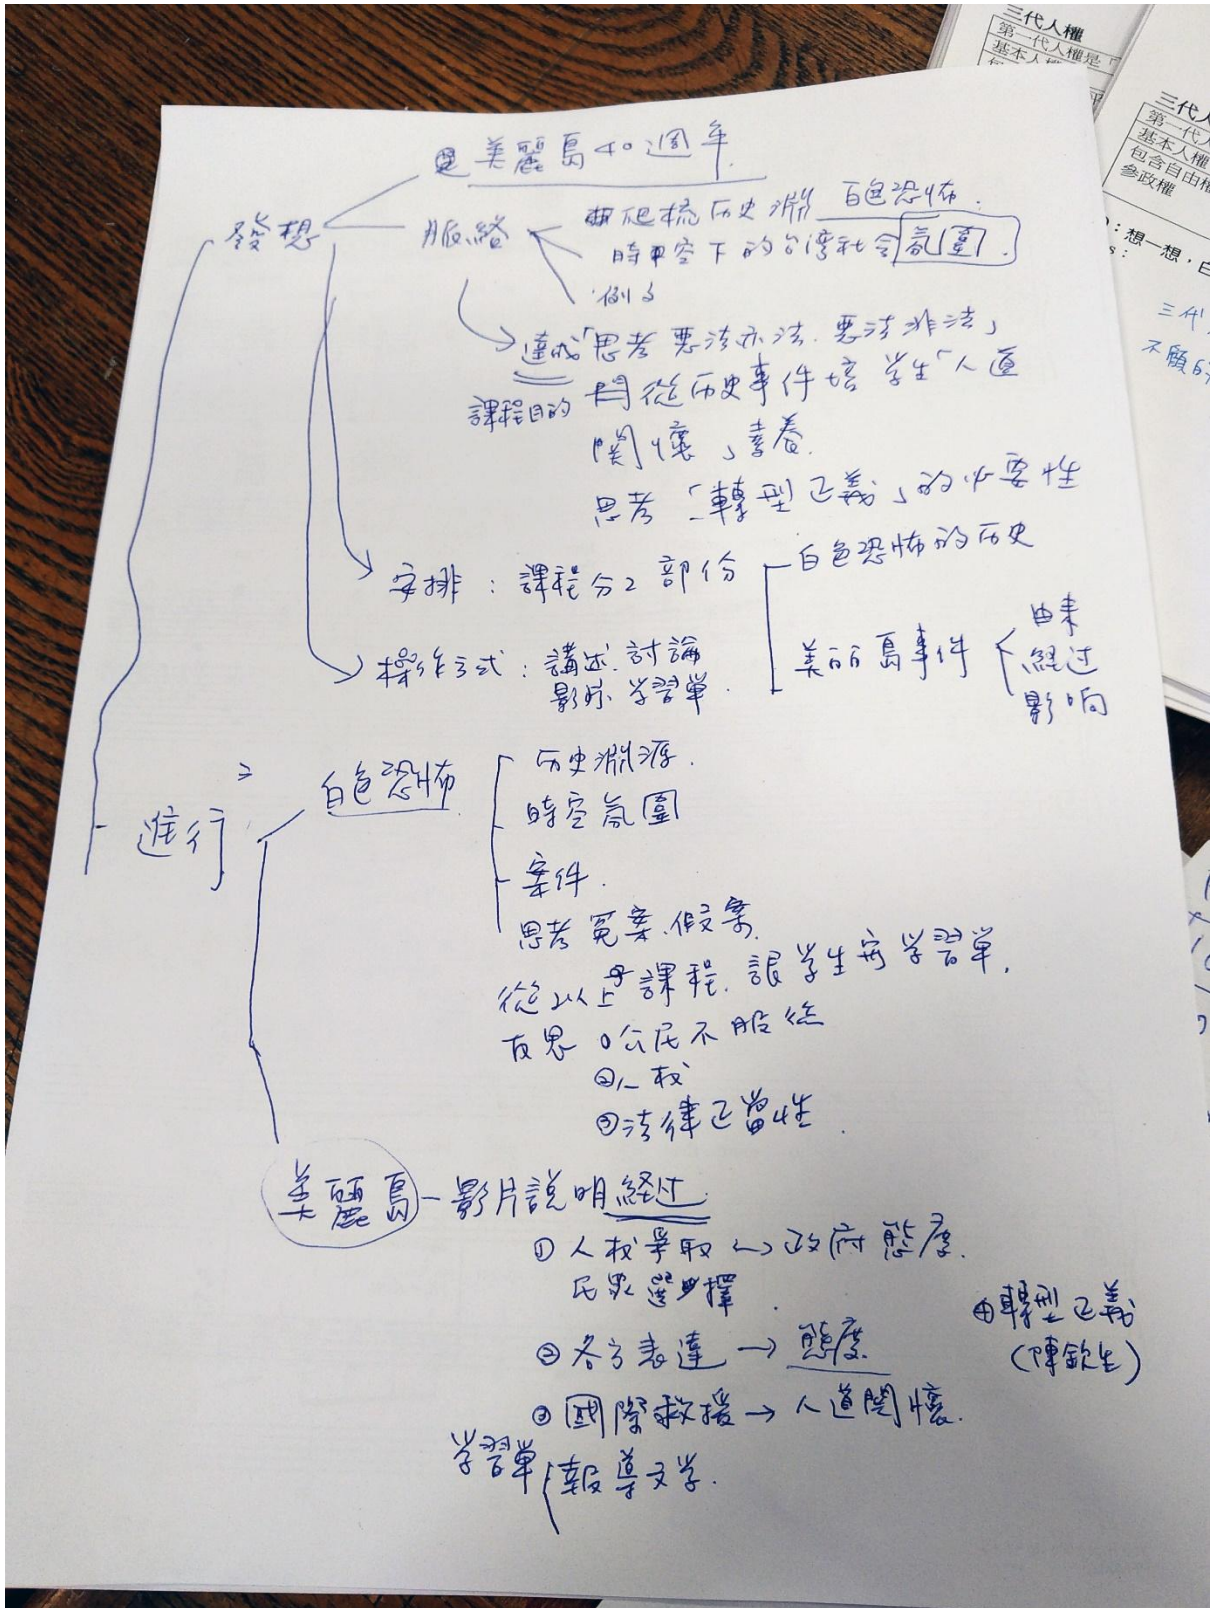 美麗島40週年
發想
脈絡
爬梳历史淵 白色恐怖.
時空下的台湾社会氛圍.
例子
達成「思考 惡法亦法. 惡法非法」
課程目的
從历史事件培 学生「人道
関懷」素養.
思考「轉型正義」的必要性
安排：課程分2部份
白色恐怖的历史
美丽島事件
由来
経过
影响
操作方式：講述.討論
影片. 学習單.
進行
白色恐怖
历史淵源.
時空氛圍
案件.
思考冤案.假案.
從以上課程. 學生 学習單.
反思 ①公民不服從
②人权
③法律正當性.
美麗島-影片説明経过.
①人权爭取 ↔ 政府態度.
民眾選擇.
②各方表達→態度.
③國際救援→人道関懷.
④轉型正義
(陳欽生)
学習單
報導文学.
三代人權
第一代人權是
基本人權
三代人
第一代人
基本人權
包含自由權
參政權
：想一想，白
三代
不願